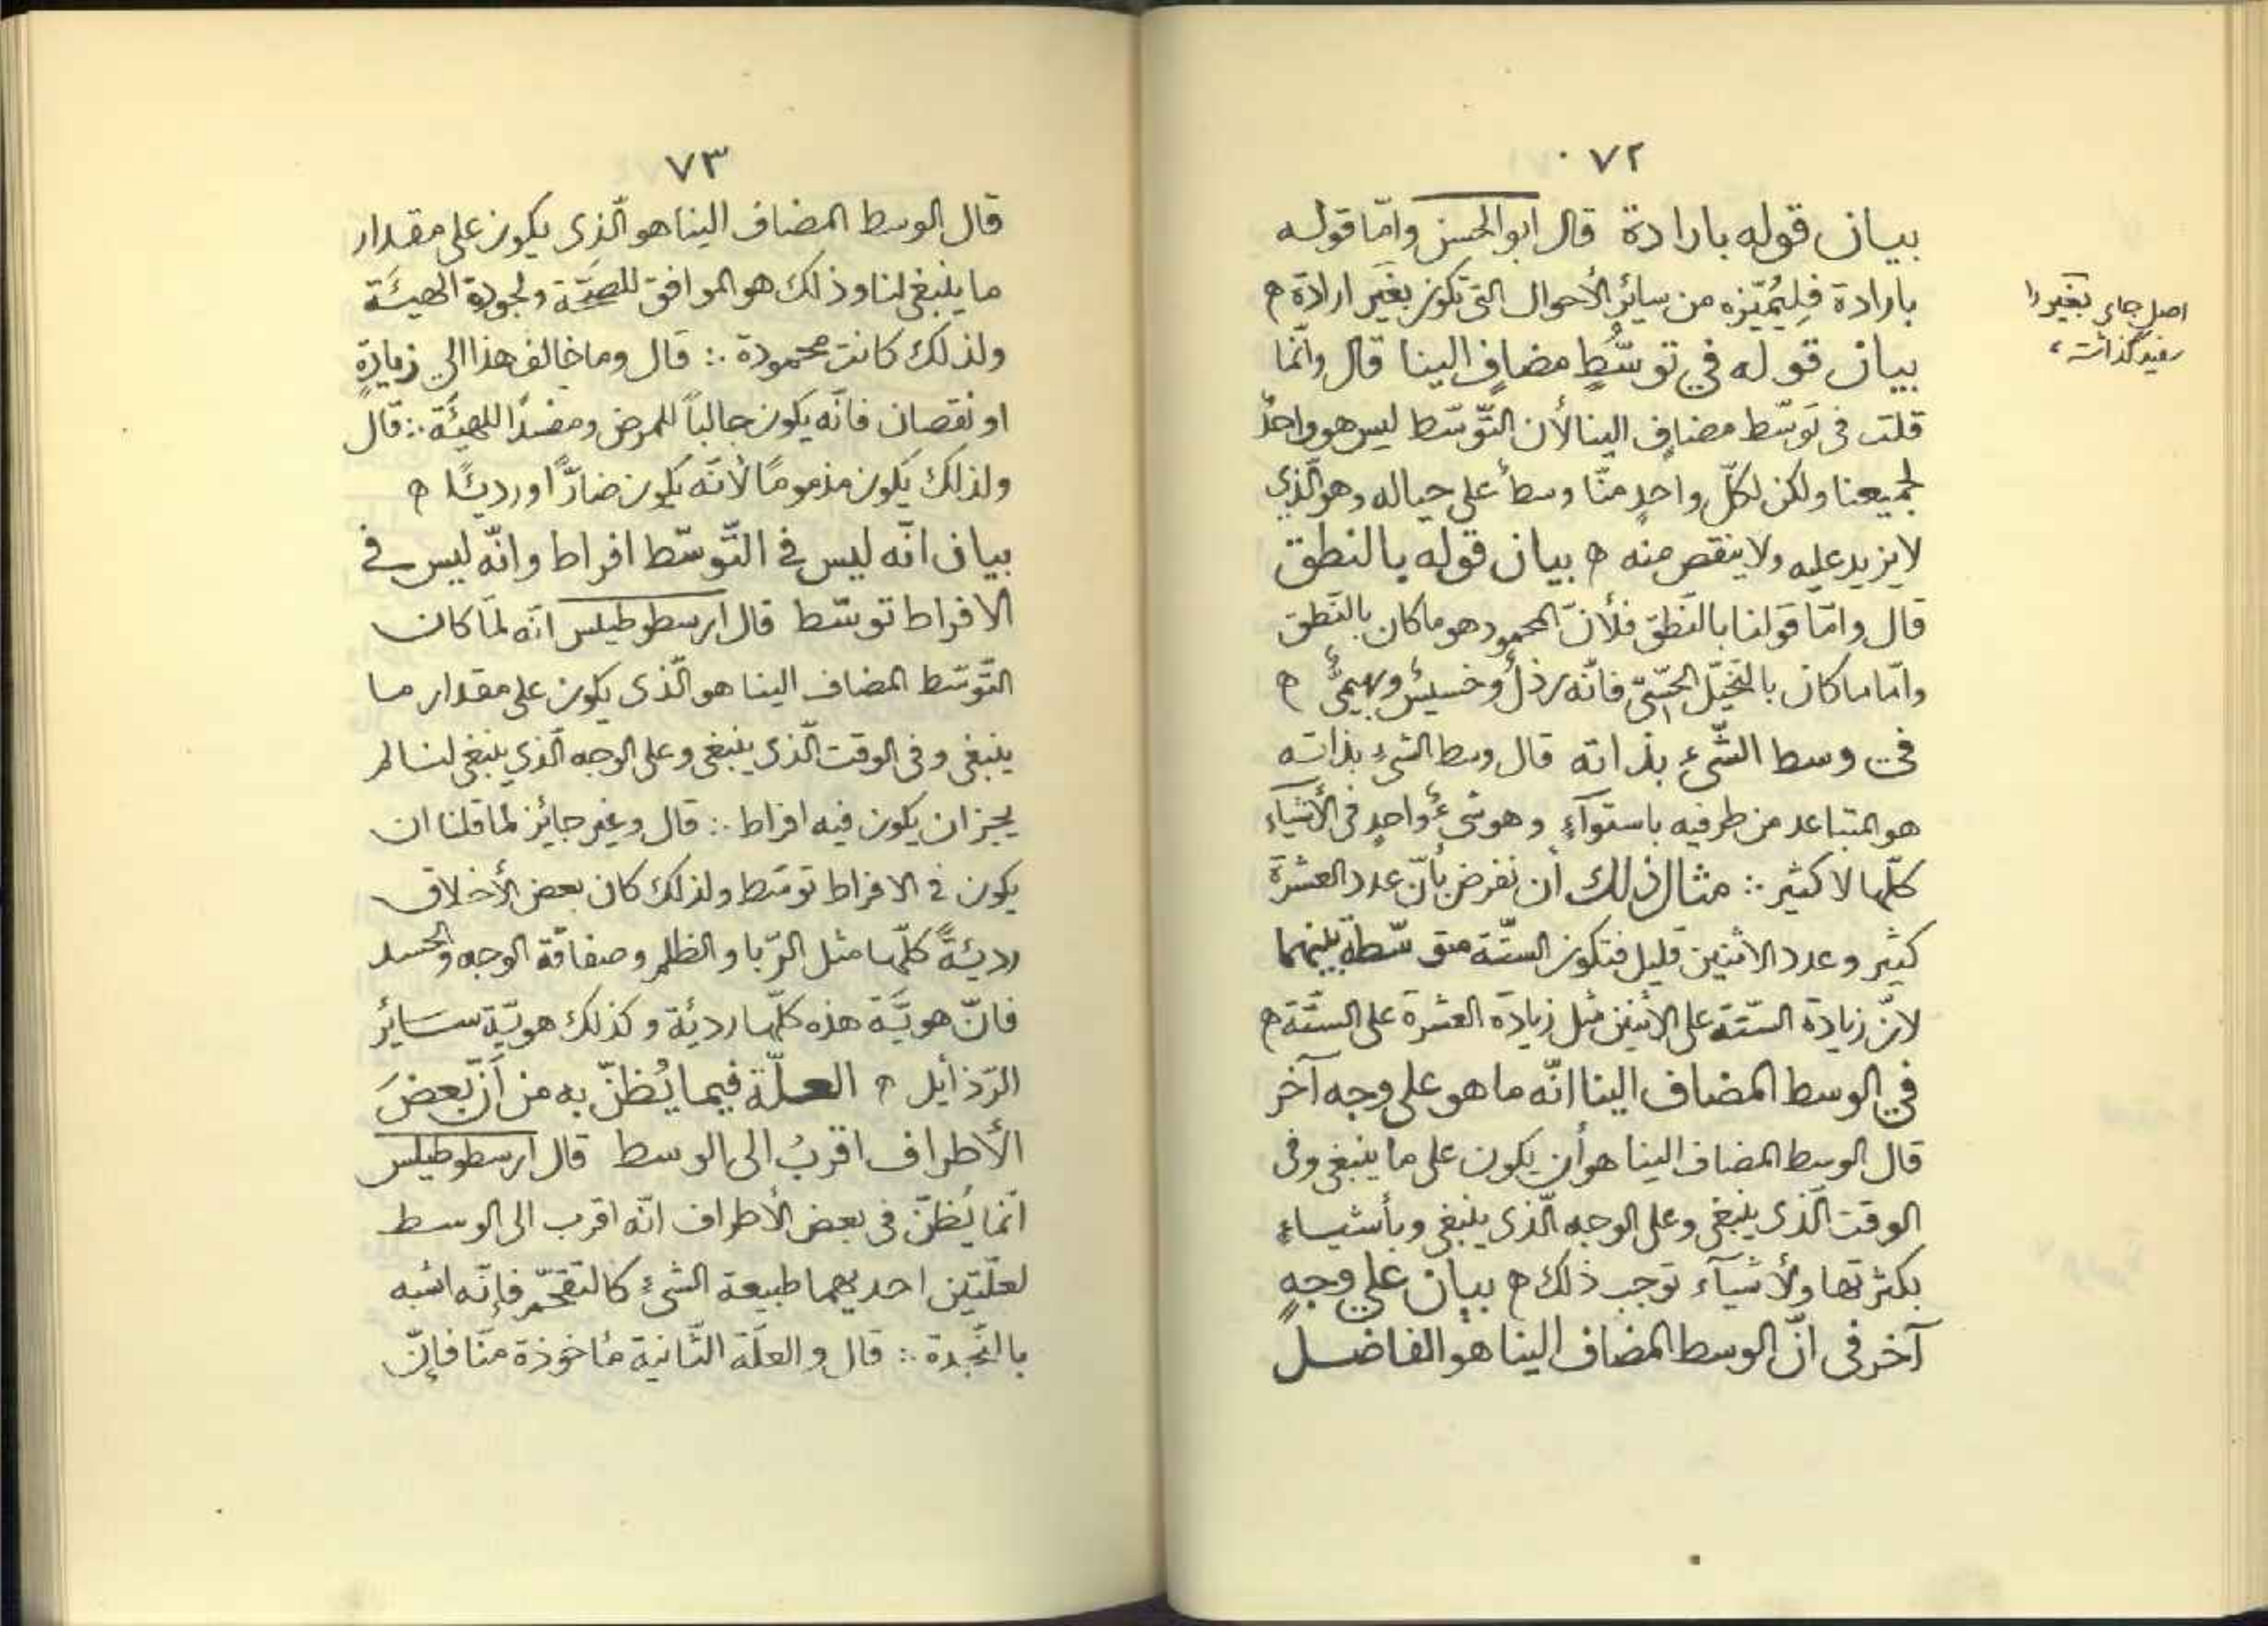 ٧٢
بيان قوله بارادة قال ابو الحسن وامّا قوله
بارادة فليُميّزه من سائر الأحوال التى تكون بغير ارادة ۞
بيان قوله في توسُّطٍ مضافٍ الينا قال وانّما
قلت فى توسّط مضافٍ الينا لأن التّوسّط ليس هو واحدٌ
لجميعنا ولكن لكلّ واحدٍ منّا وسطاً على حياله وهو الّذي
لا يزيد عليه ولا ينقص منه ۞ بيان قوله بالنطق
قال وامّا قولنا بالنّطق فلأنّ المحمود هو ما كان بالنّطق
وامّا ما كان بالتخيّل الحسّىّ فانّه رذلٌ وخسيسٌ وبهيمىٌّ ۞
فى وسط الشّىء بذاته قال وسط الشىء بذاته
هو المتباعد من طرفيه باستوآءٍ وهو شىءٌ واحدٍ فى الأشيآء
كلّها لا كثير ∴ مثال ذلك أن نفرض بأنّ عدد العشرة
كثير وعدد الاثنين قليل فتكون الستّة متوسّطة بينهما
لانّ زيادة الستّة على الاثنين مثل زيادة العشرة على الستّة ۞
في الوسط المضاف الينا انّه ما هو على وجه آخر
قال الوسط المضاف الينا هو أن يكون على ما ينبغى وفى
الوقت الّذى ينبغى وعلى الوجه الّذى ينبغى وبأشياء
بكثرتها ولأشيآء توجب ذلك ۞ بيان على وجهٍ
آخر فى انّ الوسط المضاف الينا هو الفاضل
اصل جاى بغير را
سفيد گذاشته
٧٣
قال الوسط المضاف الينا هو الّذى يكون على مقدار
ما ينبغى لنا وذلك هو الموافق للصحّة ولجودة الهيئة
ولذلك كانت محمودة ∴ قال وما خالف هذا الى زيادةٍ
او نقصان فانّه يكون جالباً للمرض ومفسدًا للهيئة ∴ قال
ولذلك يكون مذمومًا لأنّه يكون ضارّاً او رديئًا ۞
بيان انّه ليس فى التّوسّط افراط وانّه ليس فى
الافراط توسّط قال ارسطوطيلس انّه لمّا كان
التّوسّط المضاف الينا هو الّذى يكون على مقدار ما
ينبغى وفى الوقت الّذى ينبغى وعلى الوجه الّذي ينبغى لنا لم
يجز ان يكون فيه افراط ∴ قال وغير جائز لما قلنا ان
يكون فى الافراط توسّط ولذلك كان بعض الأخلاق
رديئةً كلّها مثل الرّبا والظلم وصفاقة الوجه والحسد
فانّ هويّة هذه كلّها رديئة وكذلك هويّة سائر
الرّذايل ۞ العلّة فيما يُظنّ به من أنّ بعضَ
الأطراف اقربُ الى الوسط قال ارسطوطيلس
انّما يُظنّ فى بعض الأطراف انّه اقرب الى الوسط
لعلّتين احديهما طبيعة الشىء كالتقحّم فإنّه اشبه
بالنّجدة ∴ قال والعلّة الثّانية مأخوذة منّا فإنّ